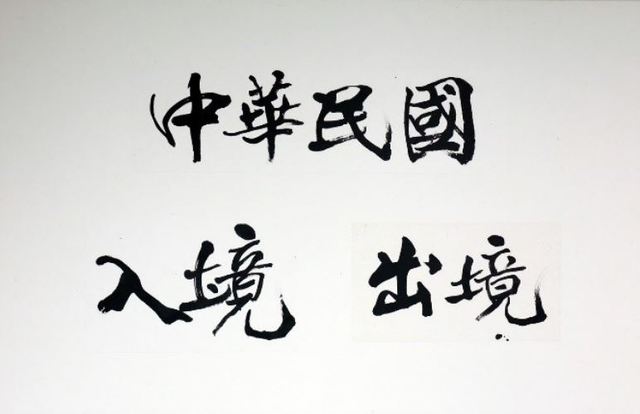 中華民國
入境 出境